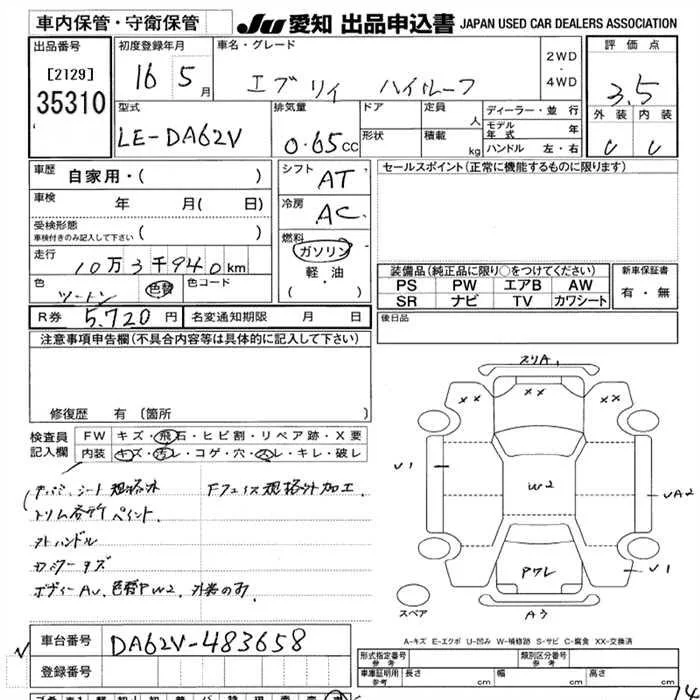 車内保管・守衛保管 JU 愛知 出品申込書 JAPAN USED CAR DEALERS ASSOCIATION
出品番号
[2129]
35310
初度登録年月
16 5月
車名・グレード
エブリィ ハイルーフ
2WD
・
4WD
評価点
3.5
外装 内装
C C
型式
LE-DA62V
排気量
0.65cc
ドア
形状
定員 人
積載 kg
ディーラー・並行
モデル年式 年
ハンドル 左・右
車歴 自家用・( )
車検 年 月( 日)
受検形態
車検付きのみ記入して下さい ( )
走行 10万3千940km
色 ツートン 色替 色コード
R券 5,720円 名変通知期限 月 日
シフト AT
冷房 AC
燃料
ガソリン
軽・油
( )
セールスポイント(正常に機能するものに限ります)
装備品(純正品に限り○をつけてください)
PS PW エアB AW
SR ナビ TV カワシート
新車保証書
有・無
後日品
注意事項申告欄(不具合内容等は具体的に記入して下さい)
修復歴 有 (箇所 )
検査員記入欄
FW キズ・飛石・ヒビ割・リペア跡・X要
内装 キズ・汚レ・コゲ・穴・スレ・キレ・破レ
シート 規格外
トリム各所ペイント.
Fフェイス規格外加工.
外ハンドル
ボディーAU. 色替PW2.
スリA
XX XX
U1
W2
UA2
U1
Pワレ
A3
スペア
A-キズ E-エクボ U-凹み W-補修跡 S-サビ C-腐食 XX-交換済
車台番号 DA62V-483658
登録番号
形式指定番号 参考
類別区分番号 参考
車庫証明用 参考 長さ cm 幅 cm 高さ cm
14